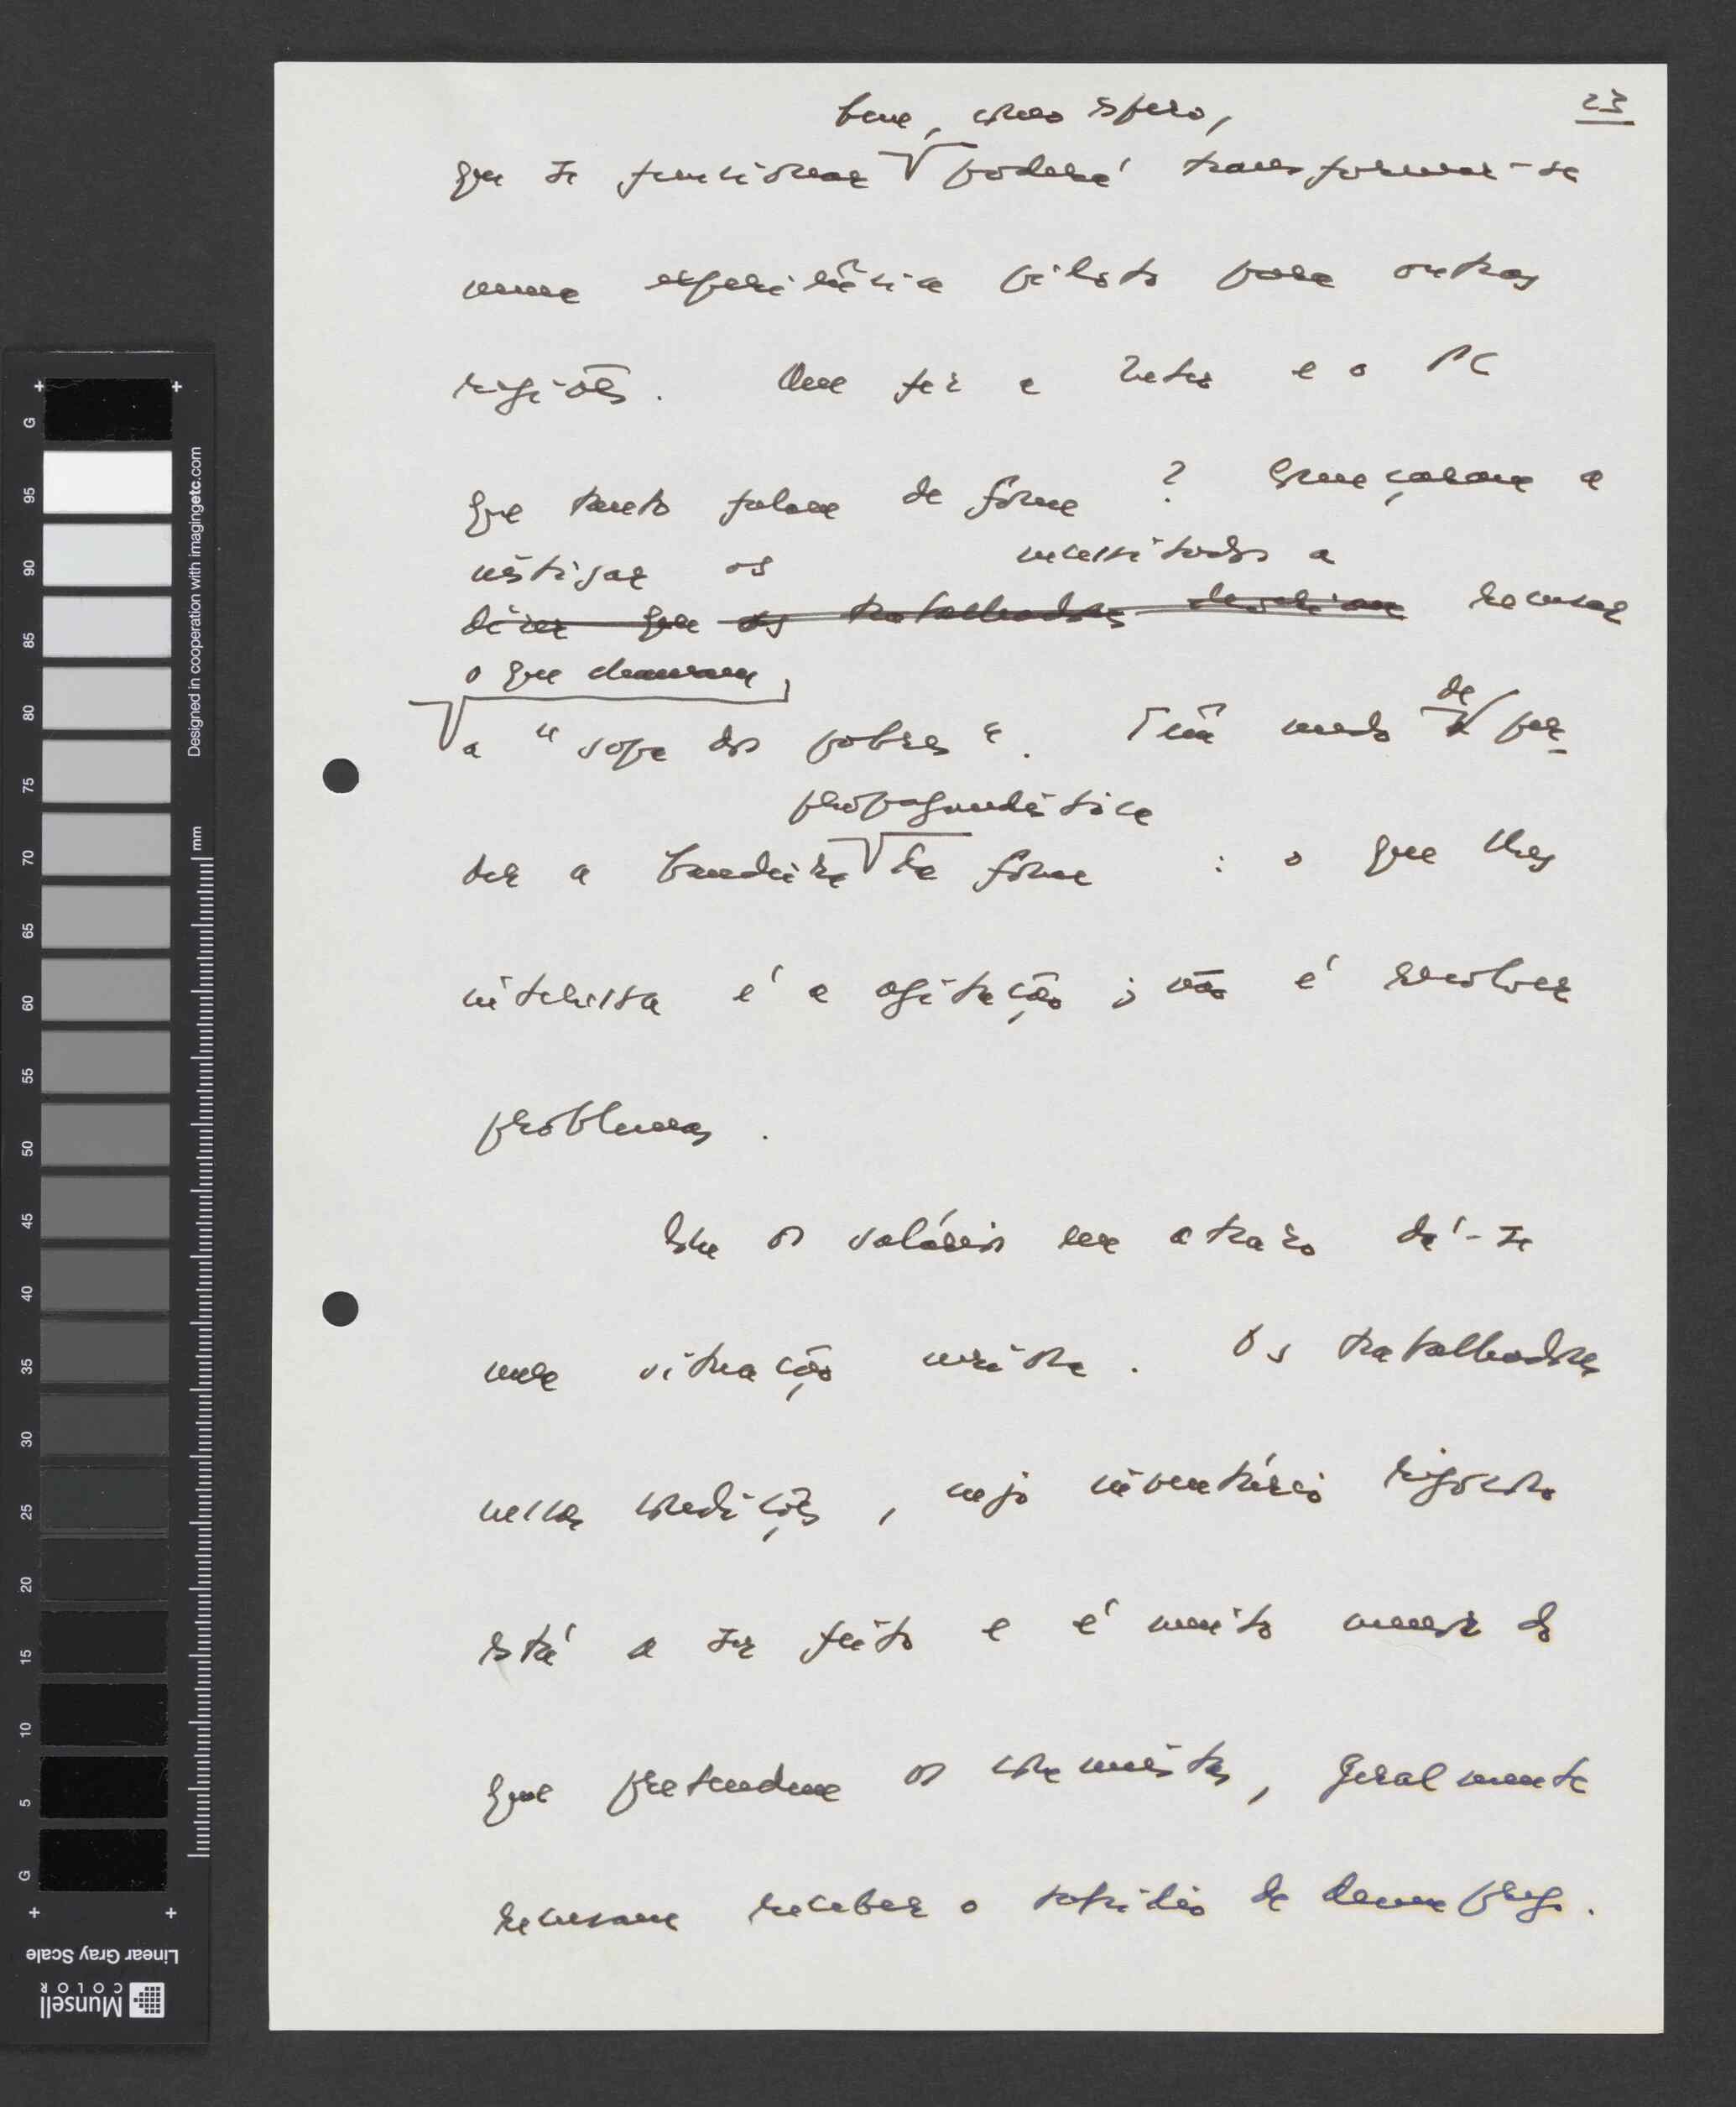 23
bem, como espero,
que se funcionar poderá transformar-se
numa experiência piloto para outras
regiões. Que fez a Inter e o PC
que tanto falam de fome ? Começaram a
instigar os necessitados a
dizer que os trabalhadores deveriam recusar
o que chamavam
a "sopa dos pobres". Têm medo de per-
propagandística
der a bandeira da fome : o que lhes
interessa é a agitação ; não é resolver
problemas .
Com os salários em atraso dá-se
uma situação . Os trabalhadores
nessas condições , cujo inventário rigoroso
está a ser feito e é muito menor do
que pretendem os comunistas, geralmente
recusam receber o subsídio de desemprego.
G 95 90 85 80 75 70 65 60 55 50 45 40 35 30 25 20 15 10 5 G
Designed in cooperation with imagingetc.com
mm
Linear Gray Scale
Munsell
COLOR